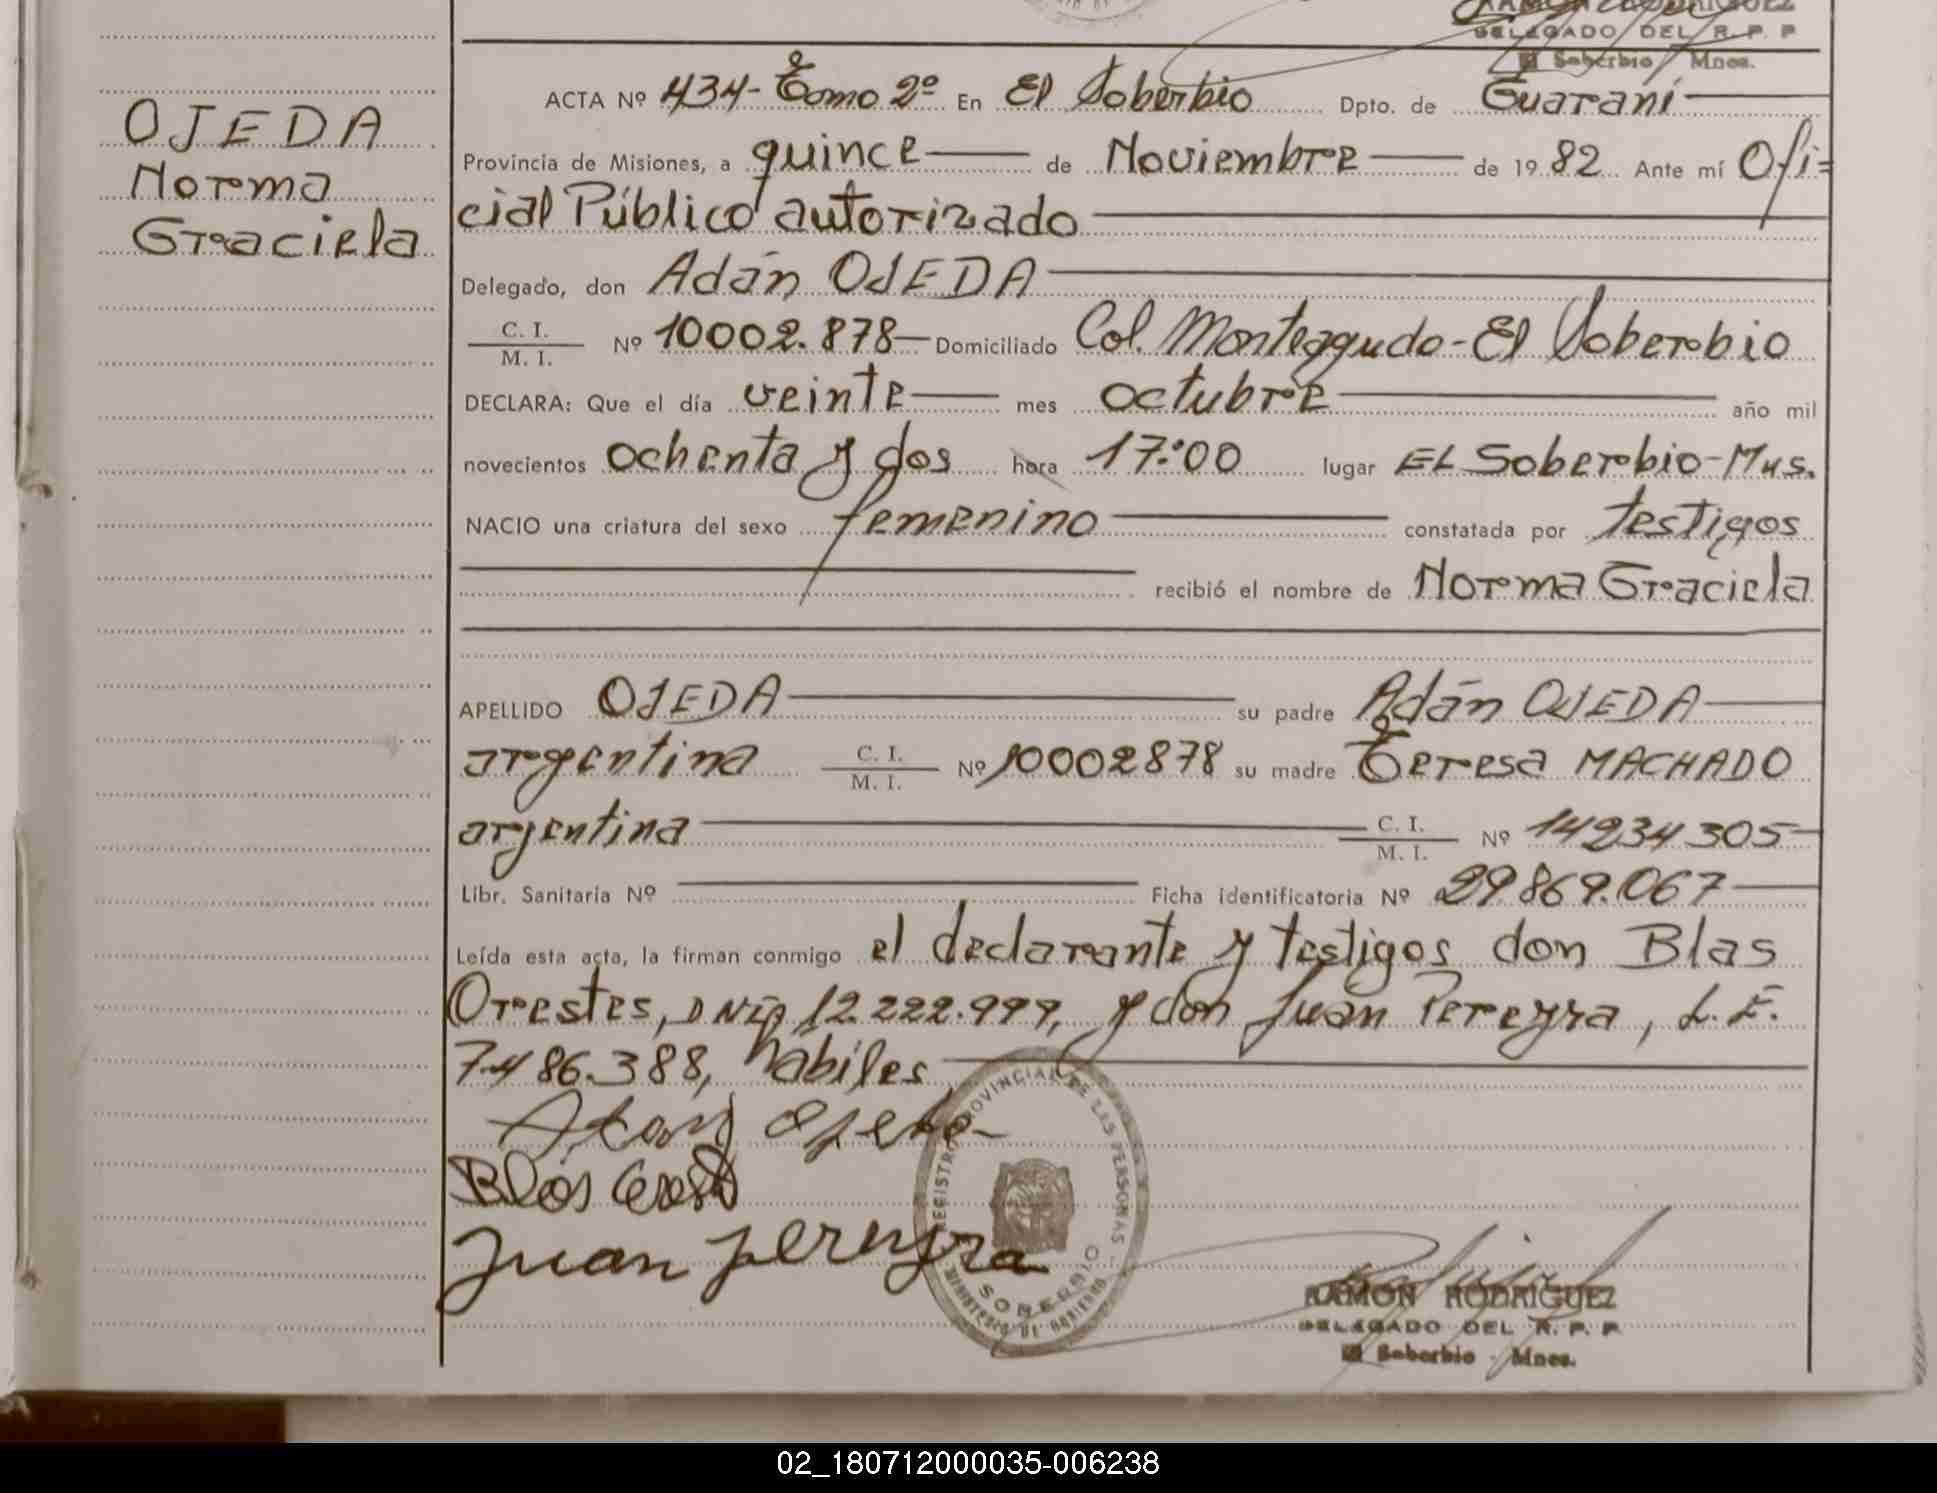 DELEGADO DEL R. P. P
El Soberbio Mnes.
OJEDA
Norma
Graciela
ACTA Nº 434- Tomo 2º En El Soberbio Dpto. de Guaraní
Provincia de Misiones, a quince de Noviembre de 19 82 Ante mí Ofi=
cial Público autorizado
Delegado, don Adán OJEDA
C. I.
M. I. Nº 10002.878 Domiciliado Col. Monteagudo-El Soberbio
DECLARA: Que el día veinte mes octubre año mil
novecientos ochenta y dos hora 17:00 lugar EL Soberbio-Mns.
NACIO una criatura del sexo femenino constatada por testigos
recibió el nombre de Norma Graciela
APELLIDO OJEDA su padre Adán OJEDA
argentina C. I.
M. I. Nº 10002878 su madre Teresa MACHADO
argentina C. I.
M. I. Nº 14234305
Libr. Sanitaria Nº Ficha identificatoria Nº 29869.067
Leída esta acta, la firman conmigo el declarante y testigos don Blas
Orestes, DNI 12.222.999, y don Juan Pereyra, L.E.
7.486.388, hábiles
Blas
Juan pereyra
REGISTRO PROVINCIAL DE LAS PERSONAS
SOBERBIO
MINISTERIO DE GOBIERNO
RAMON RODRIGUEZ
DELEGADO DEL R. P. P
El Soberbio - Mnes.
02_180712000035-006238